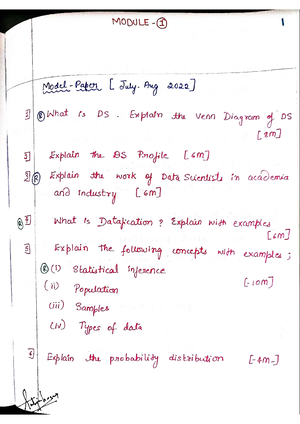 MODULE - ①
1
Model - Paper [ July. Aug 2022 ]
1] Ⓡ What is DS. Explain the Venn Diagram of DS
[8M]
2] Explain the DS Profile [6M]
3] Ⓡ Explain the work of Data Scientists in academia
and industry [6M]
Ⓡ 4] What is Datafication ? Explain with examples
[6M]
5] Explain the following concepts with examples ;
Ⓡ (i) Statistical inference
(ii) Population [-10M]
(iii) Samples
(iv) Types of data
6] Explain the probability distribution [-4M-]